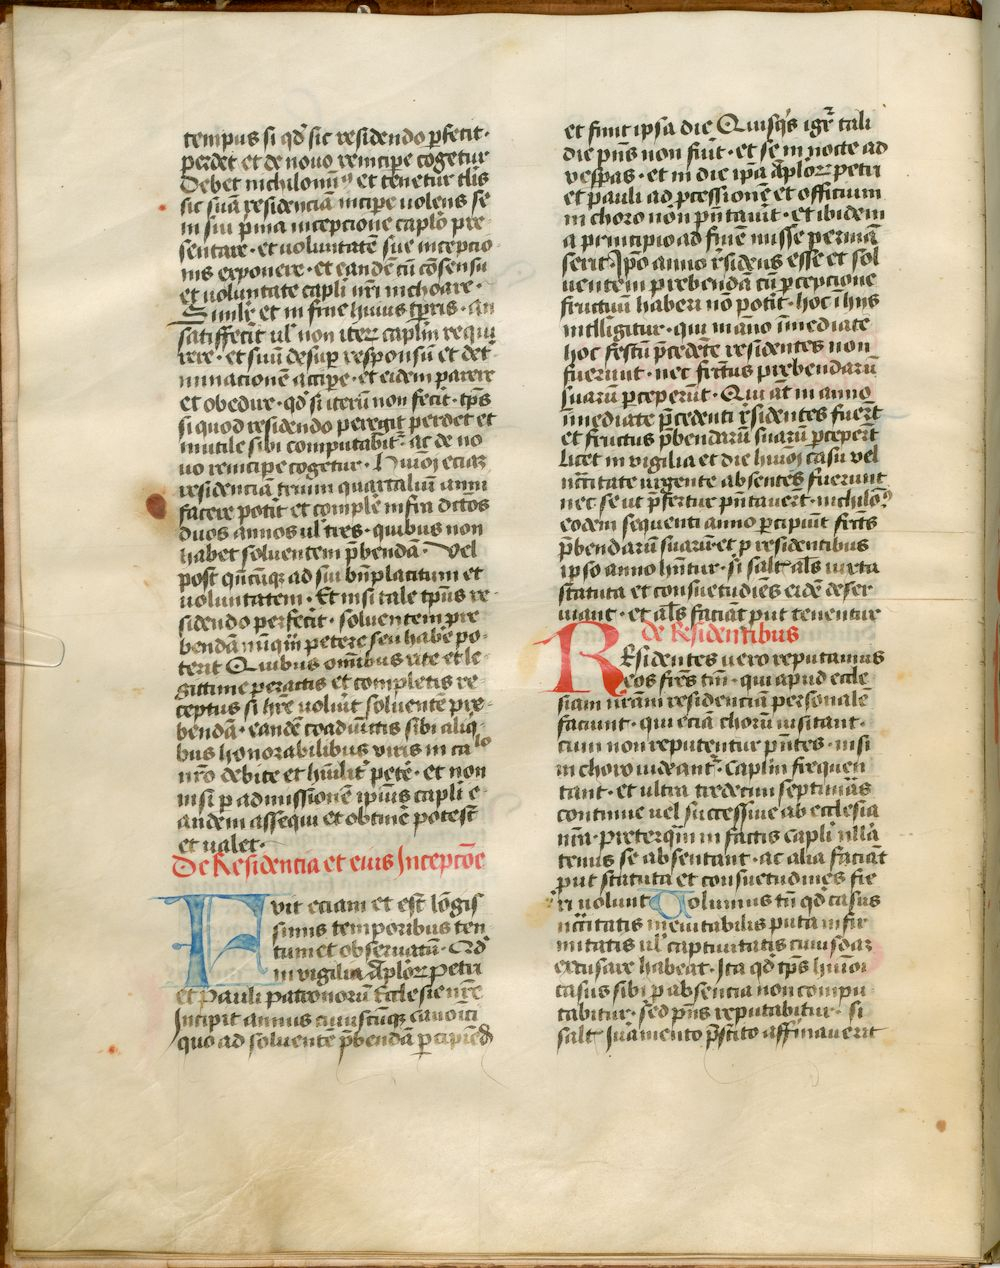 tempus si qd' sic residendo ꝑfecit ·
ꝑdet et de novo reincipe cogetur
Debet nichilomin9 et tenetur tlis
sic suā residenciā incipe volens se
in sui p̄ma incepcione caplo pre
sentare · et voluntatē sue incepcio
nis exponere · et eandē cū cōsensu
et voluntate capli nr̄i inchoare ·
Simlr̄ et in fine huius tꝑris · an
satiffecit ul' non iterꝝ caplm requi
rere · et suū desuꝑ responsū et det
minacionē accipe · et eidem parere
et obedire · qd' si iterū non fecit · tp̄s
si quod residendo peregit perdet et
inutile sibi computabit̄ · ac de no
vo reincipe cogetur · Huiōi eciaꝫ
residenciā trium quartaliū anni
facere potit et complē infra dictos
duos annos ul' tres · quibus non
habet solventem p̄bendā · Vel
post qn̄cūqꝫ ad sui bn̄placitum et
voluntatem · Et nisi tale tp̄us re
sidendo perfecit · solventem pre
bendā nūqm̄ petere seu habē po-
terit Quibus om̄ibus rite et le-
gittime peractis et completis re-
ceptus si hr̄e voluīt solventē pre-
bendā · eandē coadiūctis sibi aliq
bus honorabilibus viris in ca lo
nr̄o debite et hūilit' petē · et non
nisi ꝑ admissionē ip̄ius capli e-
andem assequi et obtinē potest
et valet ·
De Residencia et eius Incepcōe
Fvit eciam et est lōgis
simis temporibus ten
tum et observatū · Qd'
in vigilia Aplorꝝ Petri
et Pauli Patronorū Ecclesie nr̄e
Incipit annus cuiuscūqꝫ canoici
quo ad solventē p̄bendā ꝑcipiēd
et finit ipsa die Quisqs igr̄ tali
die p̄ns non fuīt · et se in nocte ad
vesꝑas · et in die ip̄a Aplorꝝ petri
et pauli ad ꝓcessionē et officium
in choro non pn̄tavit · et ibidem
a principio ad finē misse permā
serit Ip̄o anno rēsidens esse et sol
ventem prebendā cū ꝑcepcione
fructuū haberi nō potit · hoc ī hijs
intelligitur · qui in āno īmediate
hoc festū p̄cedēte residentes non
fuerunt · nec frctus prebendarū
suarū ꝑceperūt · Qui at̄ in anno
īmediate p̄cedenti rēsidentes fuer̄t
et fructus p̄bendarū suarū ꝑceper̄t
Licet in vigilia et die huiōi casu vel
nc̄citate urgente absentes fuerunt
nec se ut p̄fertur pn̄taver̄t · nichilō9
eodem sequenti anno ꝑcipiūt frcts
p̄bendarū suarū · et ꝑ residentibus
ipso anno hn̄tur · si salt als iuxta
statuta et consuetudiēs eidē deser
viant · et als faciāt ꝓut tenentur
de Residentibus
REsidentes vero reputamus
eos frēs tm̄ · qui apud eccle
siam nrām residenciā personalē
faciunt · qui eciā chorū visitant ·
cum non reputentur pn̄tes · nisi
in choro videant̄ · Caplm frequen
tant · et ultra tredecim septimās
continue vel successive ab ecclesia
nrā · preterqm̄ in factis Capli nllā
tenus se absentant · ac alia faciāt
ꝓut statuta et consuetudīes fie
ri volunt Volumus tn̄ qd' casus
nc̄citatis inevitabilis puta infir
mitatis ul' captivitatis cuiusdaꝫ
excusare habeat · Ita qd' tp̄s huiōi
casus sibi ꝑ absencia non compu-
tabitur · sed p̄ns reputabitur · si
salt Iuramento p̄stito affirmaverit